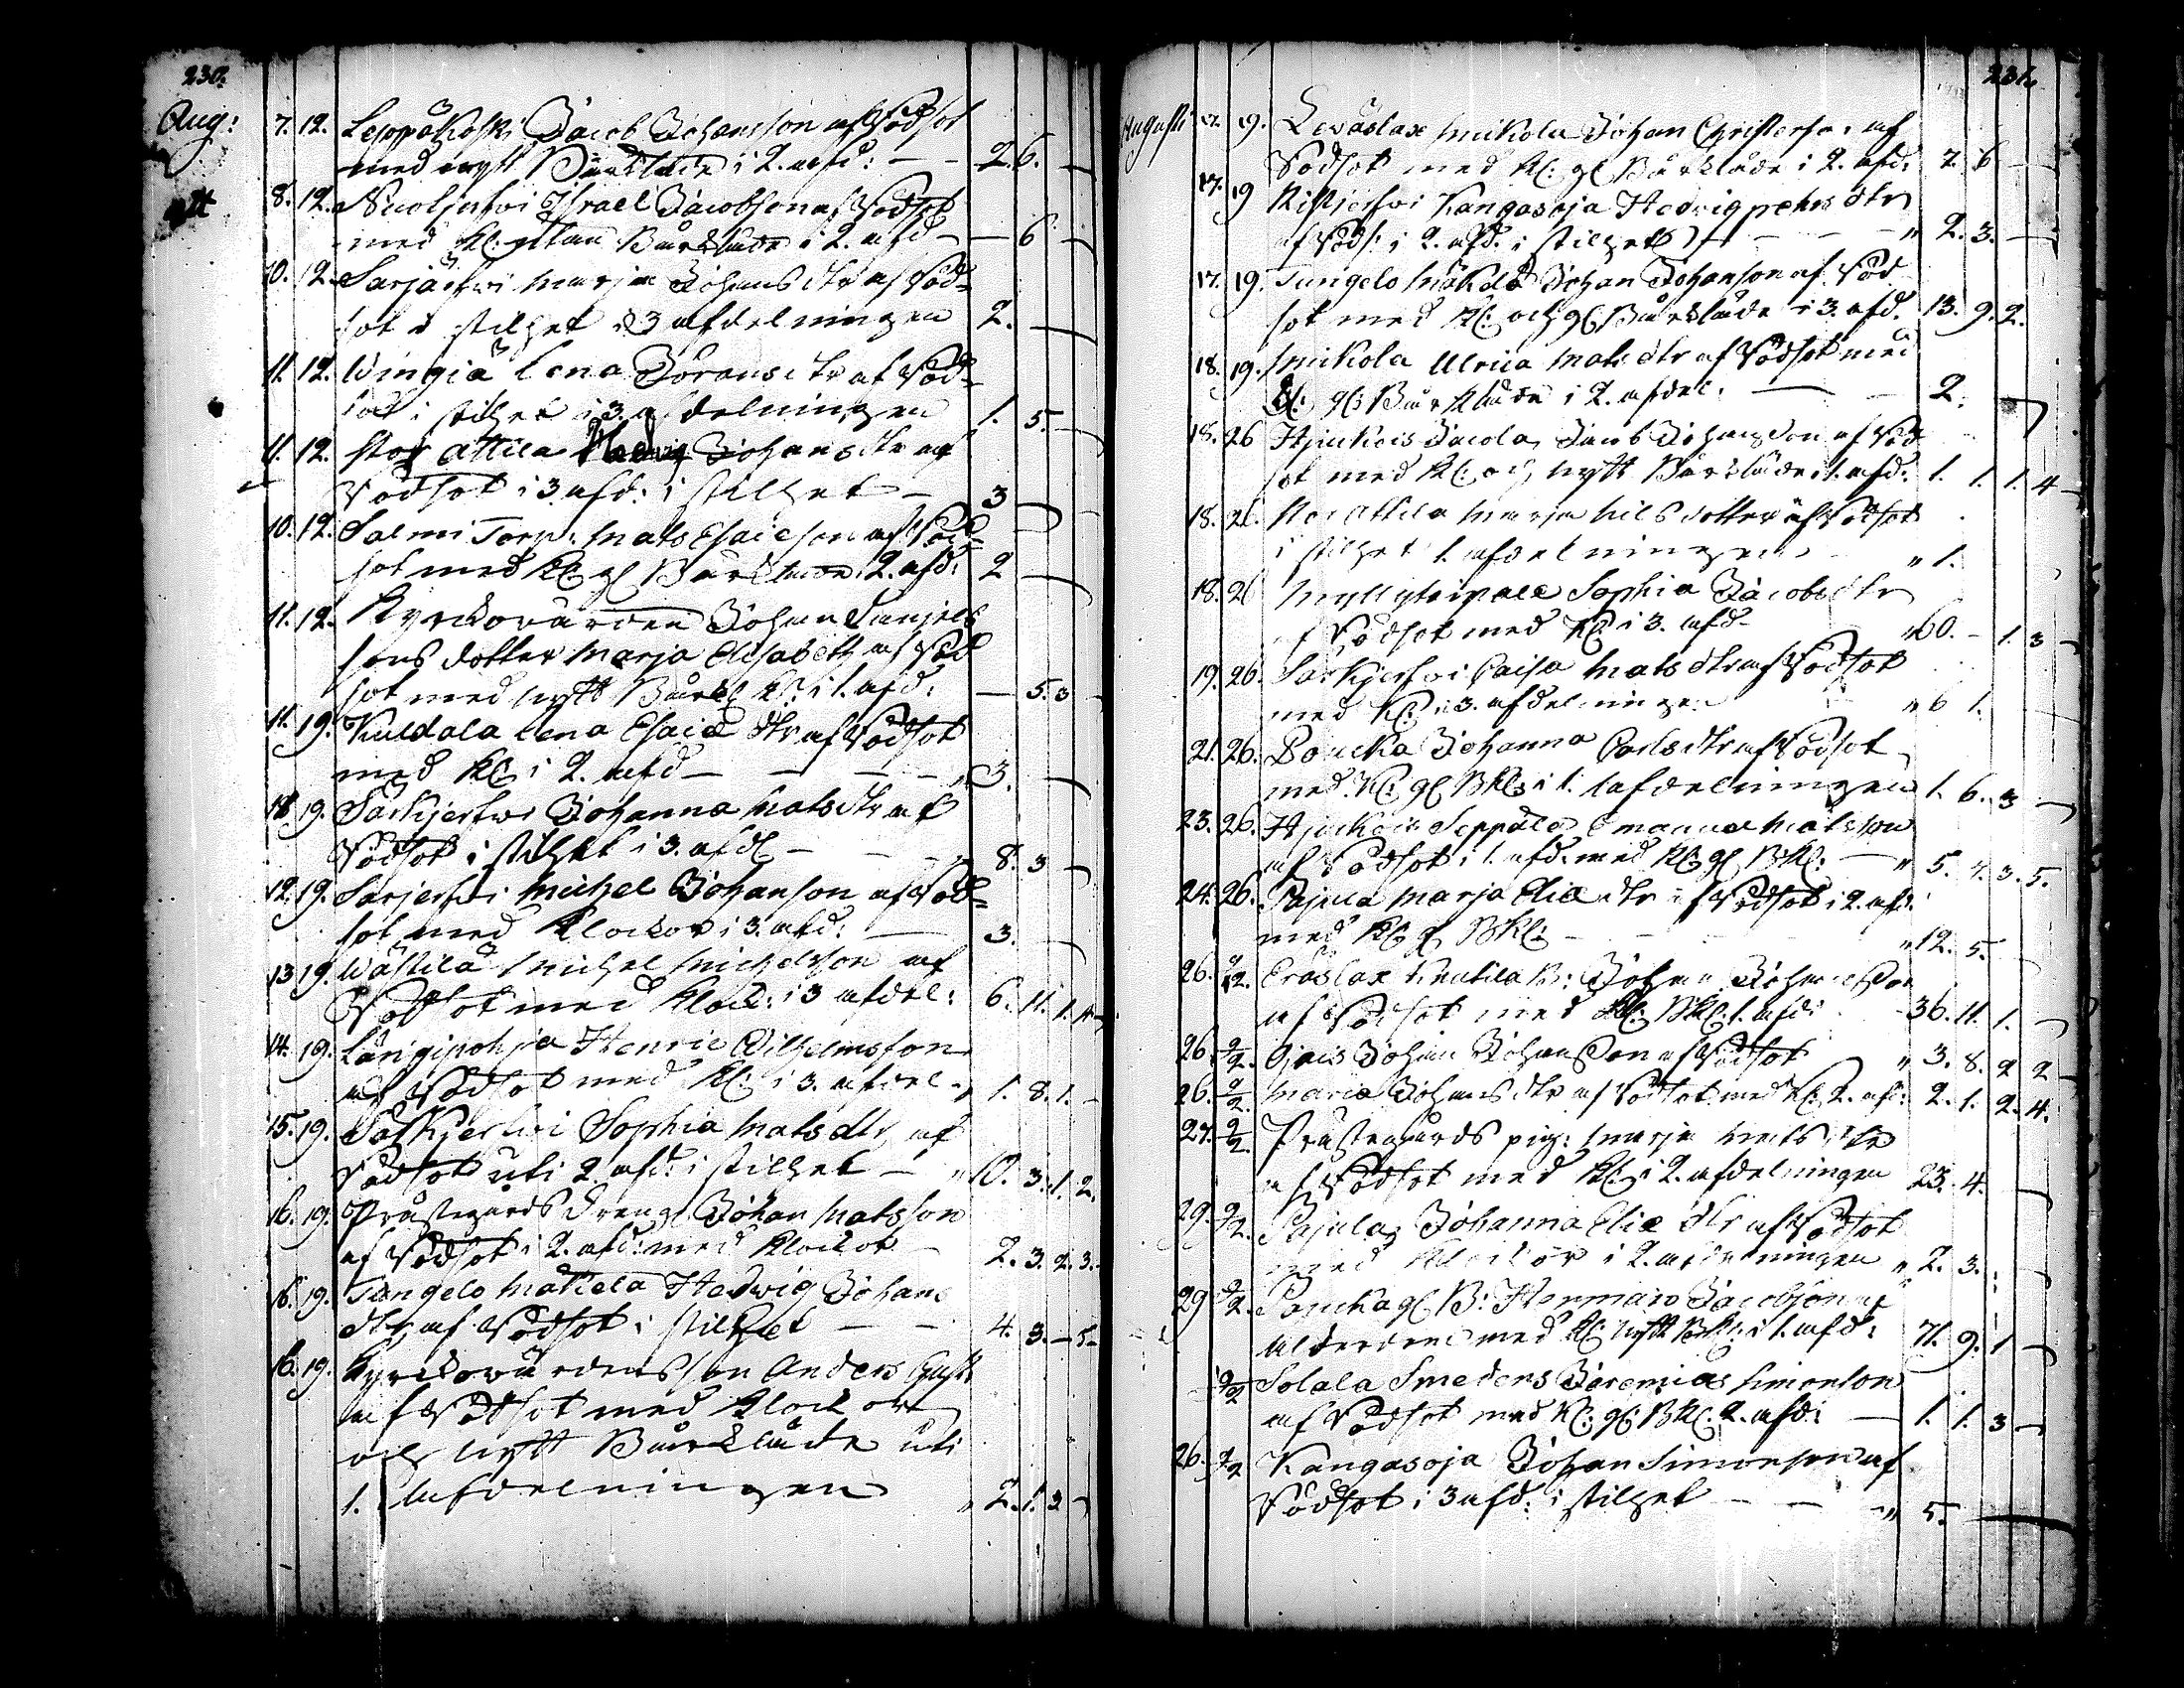 230.
Aug: 7. 12. Leppåkoski Jacob Johansson af Rödsot
med nytt Bårkläde i 2. afd: - - 2. 6. -
8. 12. Israel Jacobson af Rödsot
med Kl: utan Bårkläde i 2. afd - - 6 -
10. 12. Sarjärfwi Marja Johans dtr af Röd=
sot i stilhet i 3 afdelningen 2. -
11. 12. Wingiä Lena Görans dtr af Röd=
sot i stilhet i 3. afdelningen 1. 5. -
11. 12. Stor Attila Hedvig Johans dtr af
Rödsot i 3. afd: i stilhet - 3 -
10. 12. Salmi Torp: Mats Esaieson af Röd=
sot med Kl: gl Bårkläde 2. afd: 2 -
11. 12. Kyrckovärden Johan Danjels
sons dotter Marja Elisabeth af Röd
sot med nytt Bårkl Kl: i 1. afd: - 5. 3 -
11. 19. Kuldala Lena Esaiæ dtr af Rödsot
med Kl: i 2. afd - - - - 3. -
18 19. Särkjerfwi Johanna Mats dtr af
Rödsot i stilhet i 3. afd - - - 8. 3 -
12. 19. Sarjerfwi Michel Johanson af Röd=
sot med Klockor i 3. afd: - 3. -
13 19. Wästilä Michel Michelsson af
Rödsot med Klock: i 3 afdel: 6. 11. 1. 4
14. 19. Längipohja Henric Wilhelmsson
af Rödsot med Kl: i 3. afdel - 1. 8. 1. -
15. 19. Särkjerfwi Sophia Mats dtr af
Rödsot uti 2. afd: i stilhet - 10. 3. 1. 2.
16. 19. Prästegårds Dreng Johan Matsson
af Rödsot i 2. afd: med Klockor - 2. 3. 2. 3.
16. 19. Tungelo Mattela Hedwig Johans
dtr af Rödsot i stilhet - - 4. 3. - 5.
16. 19. Kyrckovärdens son Anders
af Rödsot med Klockor
och nytt Bårkläde uti
1. Afdelningen 2. 1. 3 -
231.
Augusti 17. 19. Leväslax Mikola Johan Christerson af
Rödsot med Kl: gl Bårkläde i 2. afd: 7. 6 -
17. 19 Kangasoja Hedvig Pehrs dtr
af Röds: i 2. afd. i stilhet - - - " 2. 3. -
17. 19. Tungelo Johan Johanson af Röd
sot med Kl: och gl Bårkläde i 3. afd. 13. 9. 2.
18. 19. Mikola Ulrica Mats dtr af Rödsot med
Kl: gl: Bårkläde i 2. afdel. - - 2. -
18. 26 Jacola Jacob Johanson af Röd
sot med Kl: och nytt Bårkläde i 1. afd. 1. 1. 1. 4
18. 26. Stor Attila Marja Nils dotter af Rödsot
i stilhet 1. afdelningen " 1.
18. 26 Sophia Jacobs dtr
af Rödsot med Kl: i 3. afd - " 60. - 1. 3 -
19. 26. Särkjerfwi Caisa Mats dtr af Rödsot
med Kl: i 3. afdelningen " 6 1.
21. 26. Poucka Johanna Carls dtr af Rödsot
med Kl: gl BKl: i 1. afdelningen 1. 6. 3 -
23. 26. Seppälä Emanuel Matsson
af Rödsot i 1. afd. med Kl: gl BKl: - " 5. 4. 3. 5.
24. 26. Pajula Marja Eliæ dtr af Rödsot i 2. afd.
med Kl: gl BKl: - - - " 12. 5. -
26. 9/2. Eräslax Johan Johansson
af Rödsot med Kl: BKl: 1. afd: - 36. 11. 1. -
26. 9/2. Johan Johanson af Rödsot " 3. 8. 2 2
26. 9/2. Maria Johans dtr af Rödsot med Kl: 2. afd: 2. 1. 2. 4.
27. 9/2 Prästegårds pig: Marja Mats dtr
af Rödsot med Kl: i 2. afdelningen 23. 4. -
29. 9/2. Pajula Johanna Eliæ dtr af Rödsot
med Klockor i 2. afdelningen " 2. 3. -
29 9/2. Poucka gl B: Herman Jacobson af
Ålderdom med Kl: nytt BKl: i 1. afd: 71. 9. 1 -
9/2 Solala Smedens Jeremias Simonson
af Rödsot med Kl: gl: BKl: 2. afd: - 1. 1. 3 -
26. 9/2 Kangasoja Johan Simonson af
Rödsot i 3 afd: i stilhet - - " 5. -